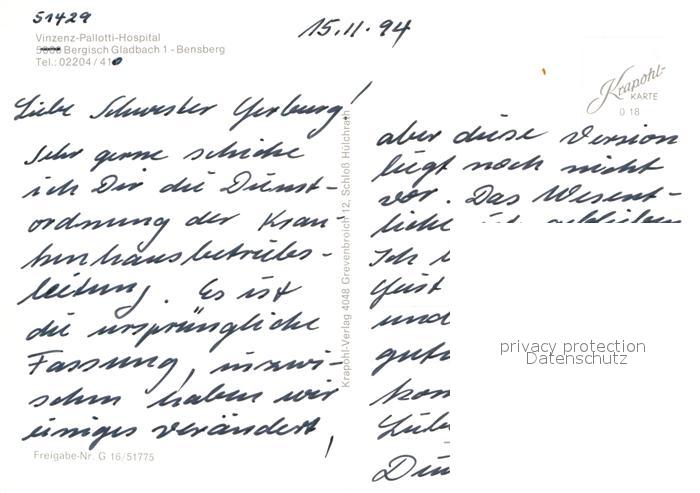 51429
Vinzenz-Pallotti-Hospital
Bergisch Gladbach 1 - Bensberg
Tel.: 02204/41
15.11.94
Krapohl-
KARTE
0 18
Liebe Schwester Gerburg!
Sehr gerne schicke
ich Dir die Dienst-
ordnung der Kran-
kenhausbetriebs-
leitung. Es ist
die ursprüngliche
Fassung, inzwi-
schen haben wir
einiges verändert,
Freigabe-Nr. G 16/51775
Krapohl-Verlag 4048 Grevenbroich 12, Schloß Hülchrath
aber diese Version
liegt noch nicht
vor. Das Wesent-
liche ist geblieben
Ich
Geist
und
gute
kom
Liebe
privacy protection
Datenschutz